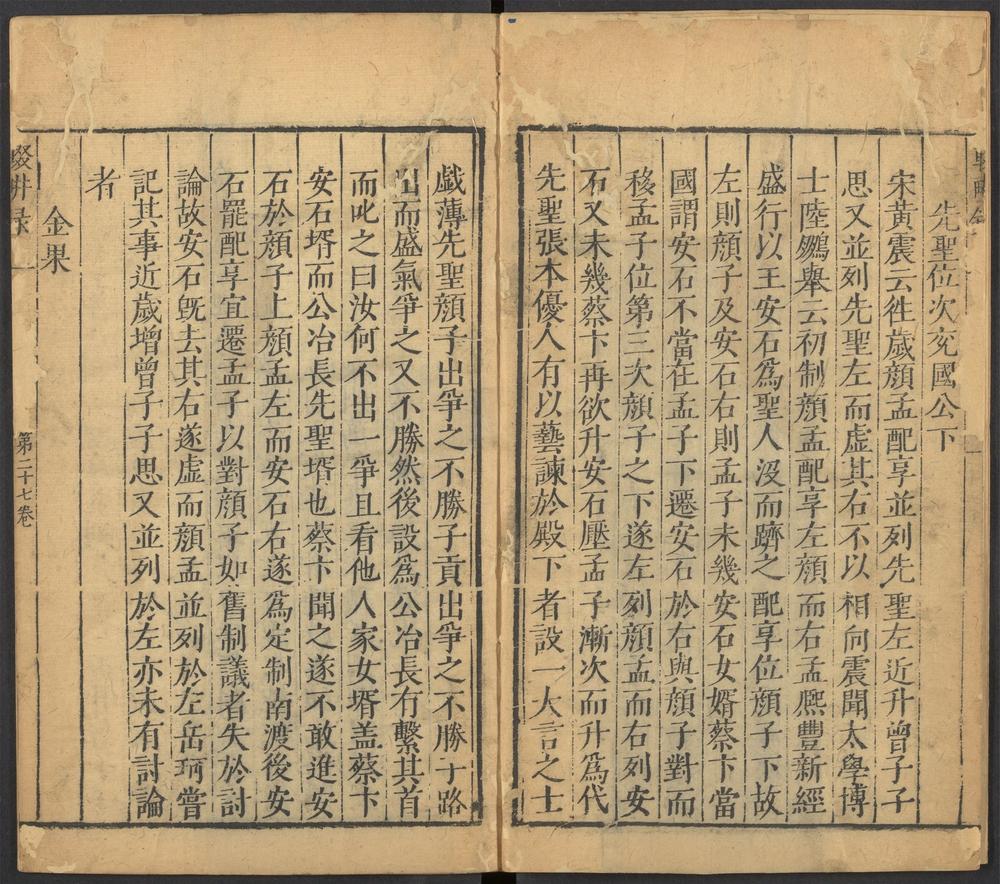 先聖位次兖國公下
宋黃震云徃歲顔孟配享並列先聖左近升曾子子
思又並列先聖左而虛其右不以相向震聞太學博
士陸鵬舉云初制顔孟配享左顔而右孟熈豐新經
盛行以王安石爲聖人沒而躋之配享位顔子下故
左則顔子及安石右則孟子未幾安石女婿蔡卞當
國謂安石不當在孟子下遷安石於右與顔子對而
移孟子位第三次顔子之下遂左列顔孟而右列安
石又未幾蔡卞再欲升安石壓孟子漸次而升爲代
先聖張本優人有以藝諫於殿下者設一大言之士
戲薄先聖顔子出爭之不勝子貢出爭之不勝子路
出而盛氣爭之又不勝然後設爲公冶長冇繫其首
而叱之曰汝何不出一爭且看他人家女壻盖蔡卞
安石壻而公冶長先聖壻也蔡卞聞之遂不敢進安
石於顔子上顔孟左而安石右遂爲定制南渡後安
石罷配享宜遷孟子以對顔子如舊制議者失於討
論故安石旣去其右遂虛而顔孟並列於左岳珂嘗
記其事近歲增曾子子思又並列於左亦未有討論
者
金果
輟畊录
第二十七卷